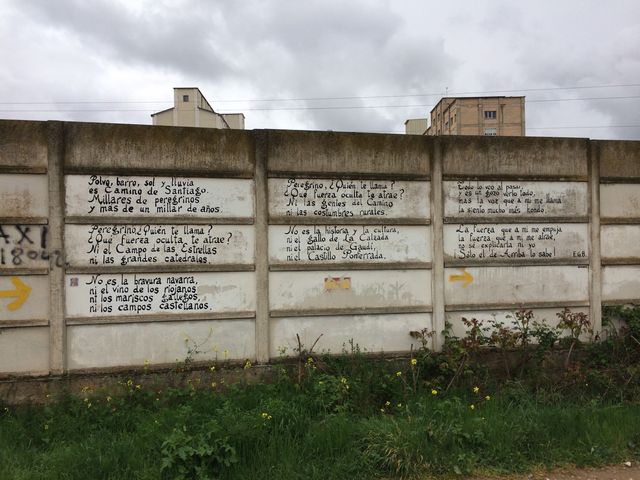 Polvo, barro, sol y lluvia
es Camino de Santiago.
Millares de peregrinos
y más de un millar de años.
Peregrino, ¿Quién te llama?
¿Qué fuerza oculta te atrae?
Ni el Campo de las Estrellas
ni las grandes catedrales.
No es la bravura navarra,
ni el vino de los riojanos
ni los mariscos gallegos,
ni los campos castellanos.
Peregrino, ¿Quién te llama?
¿Qué fuerza oculta te atrae?
Ni las gentes del Camino
ni las costumbres rurales.
No es la historia y la cultura,
ni el gallo de La Calzada
ni el palacio de Gaudí,
ni el Castillo Ponferrada.
Todo lo veo al pasar,
y es un gozo verlo todo,
mas la voz que a mí me llama
la siento mucho más hondo.
La fuerza que a mí me empuja
la fuerza que a mí me atrae,
no sé explicarla ni yo
Sólo el de Arriba lo sabe
E.G.B.
AXI
18042